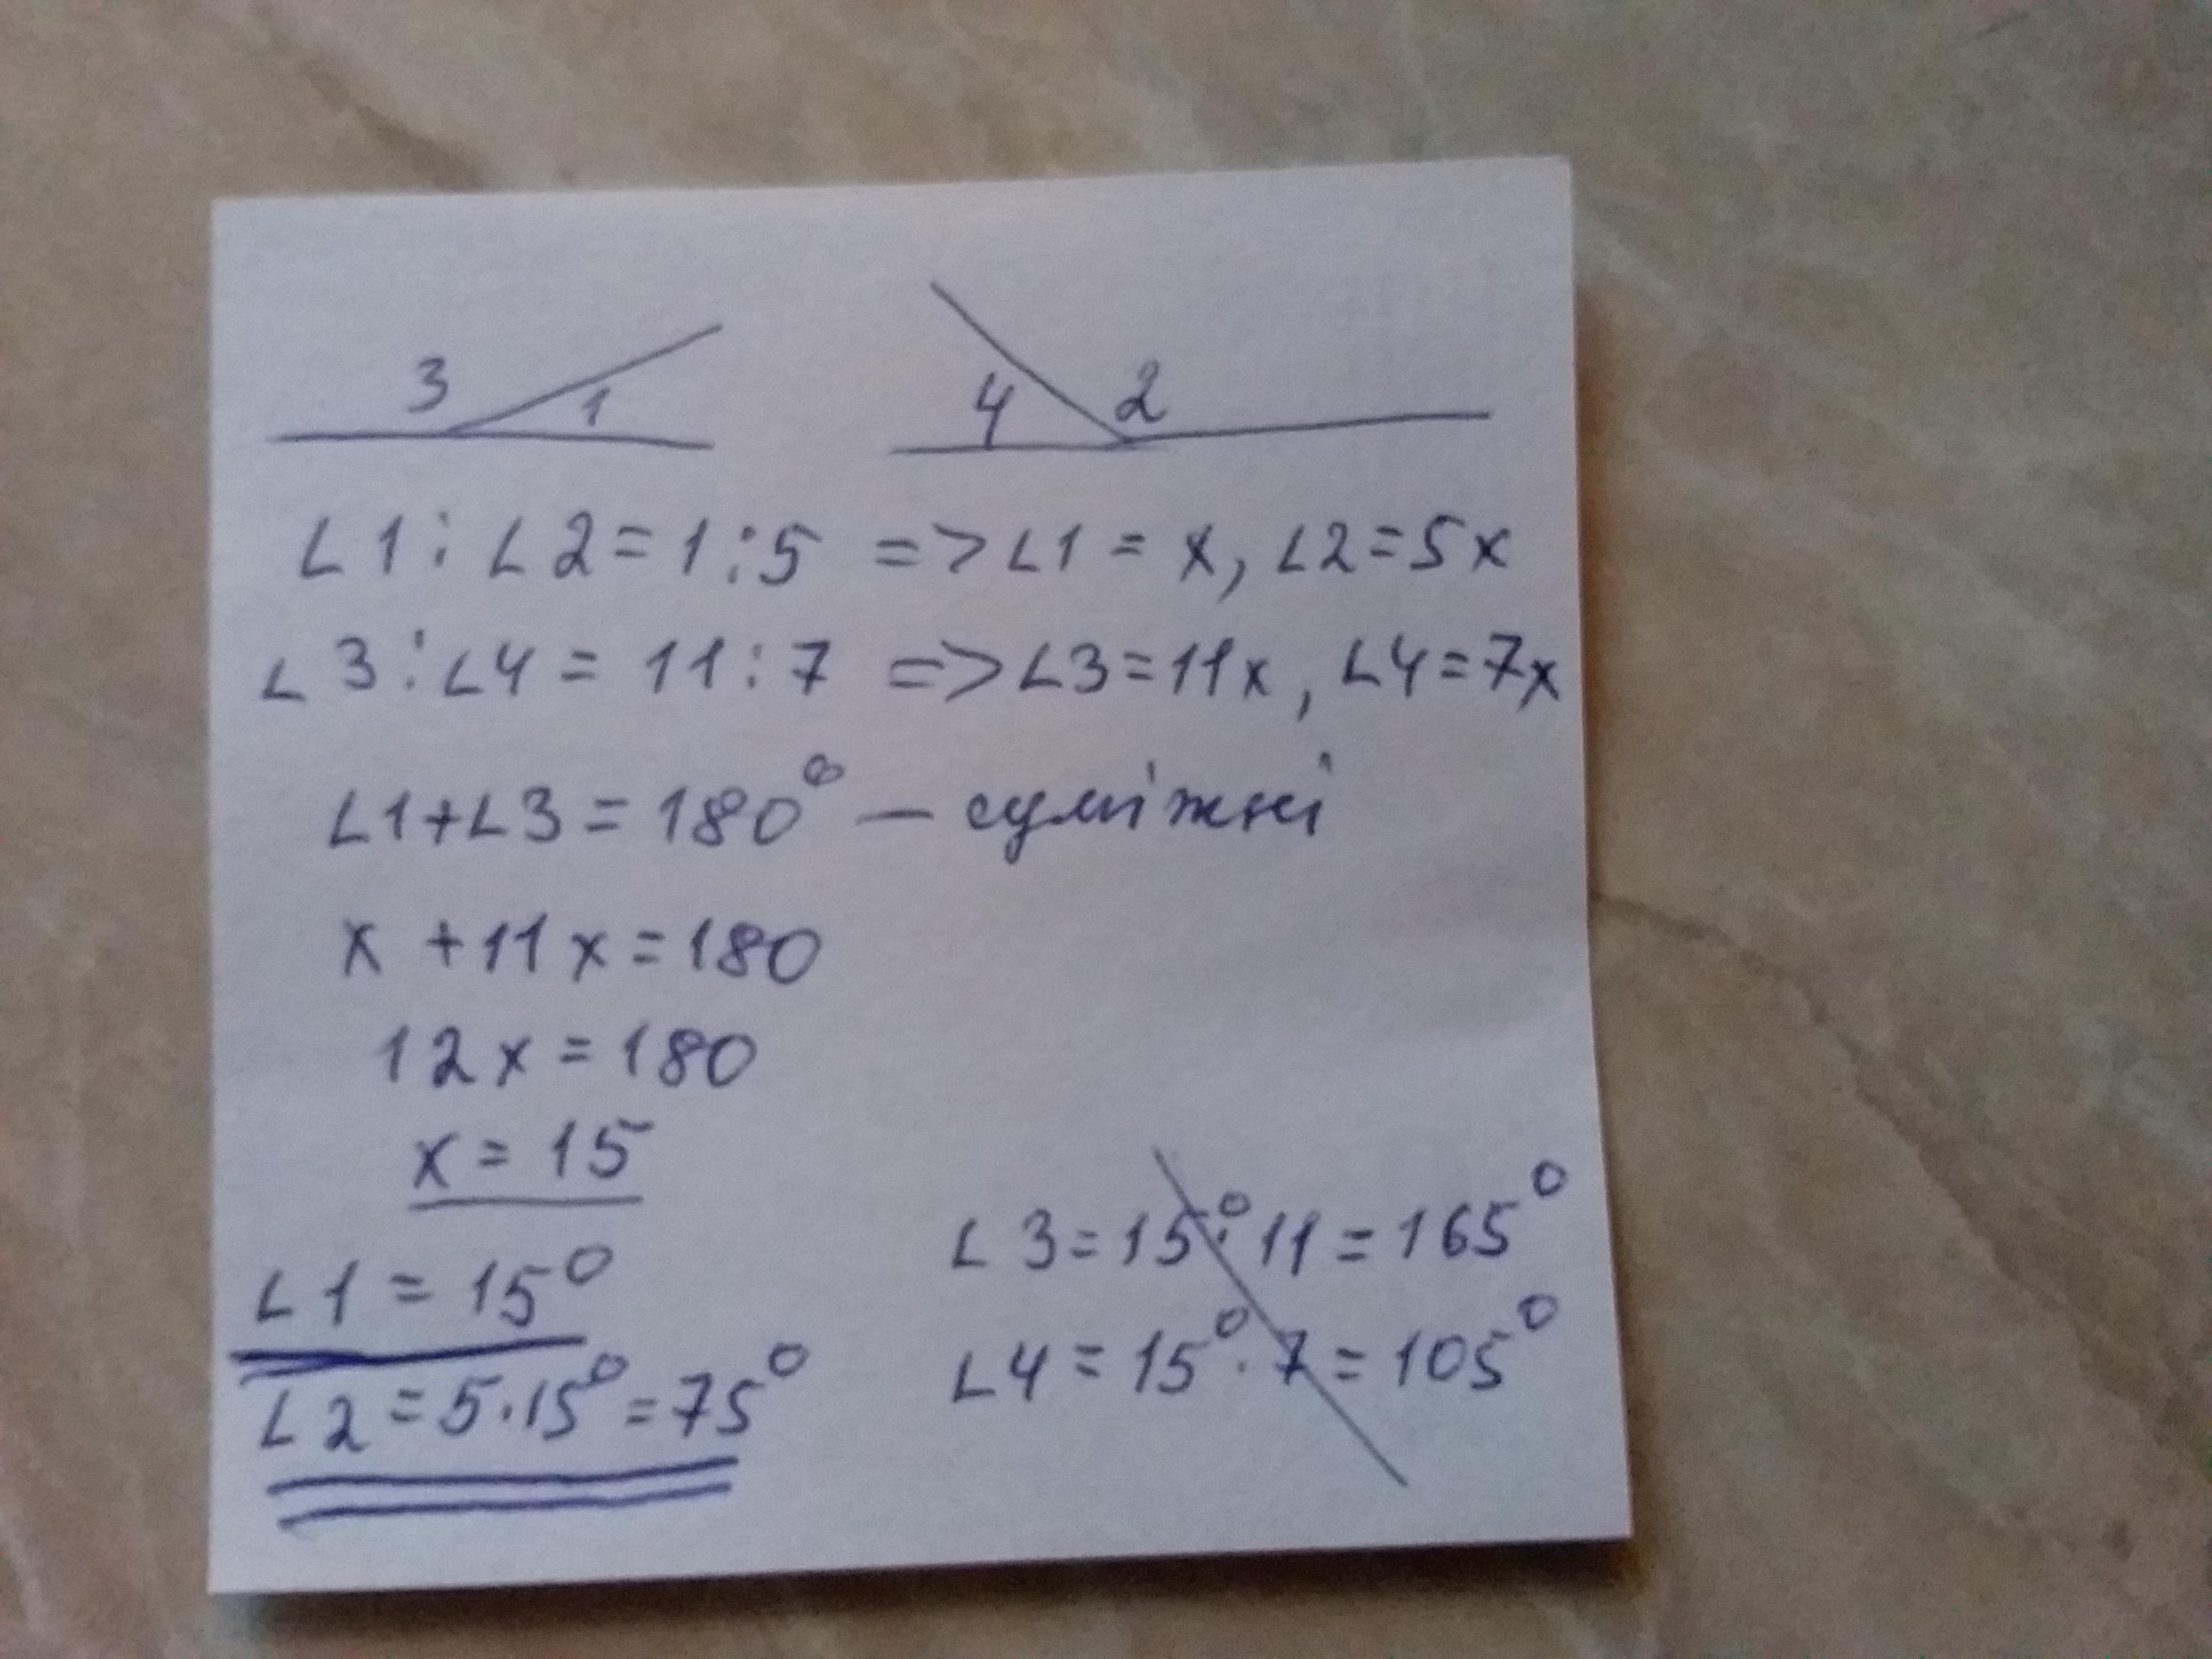 3 1 4 2
∠1 : ∠2 = 1 : 5 => ∠1 = x, ∠2 = 5x
∠3 : ∠4 = 11 : 7 => ∠3 = 11x, ∠4 = 7x
∠1 + ∠3 = 180° — суміжні
x + 11x = 180
12x = 180
x = 15
∠1 = 15°
∠2 = 5 · 15° = 75°
∠3 = 15° · 11 = 165°
∠4 = 15° · 7 = 105°